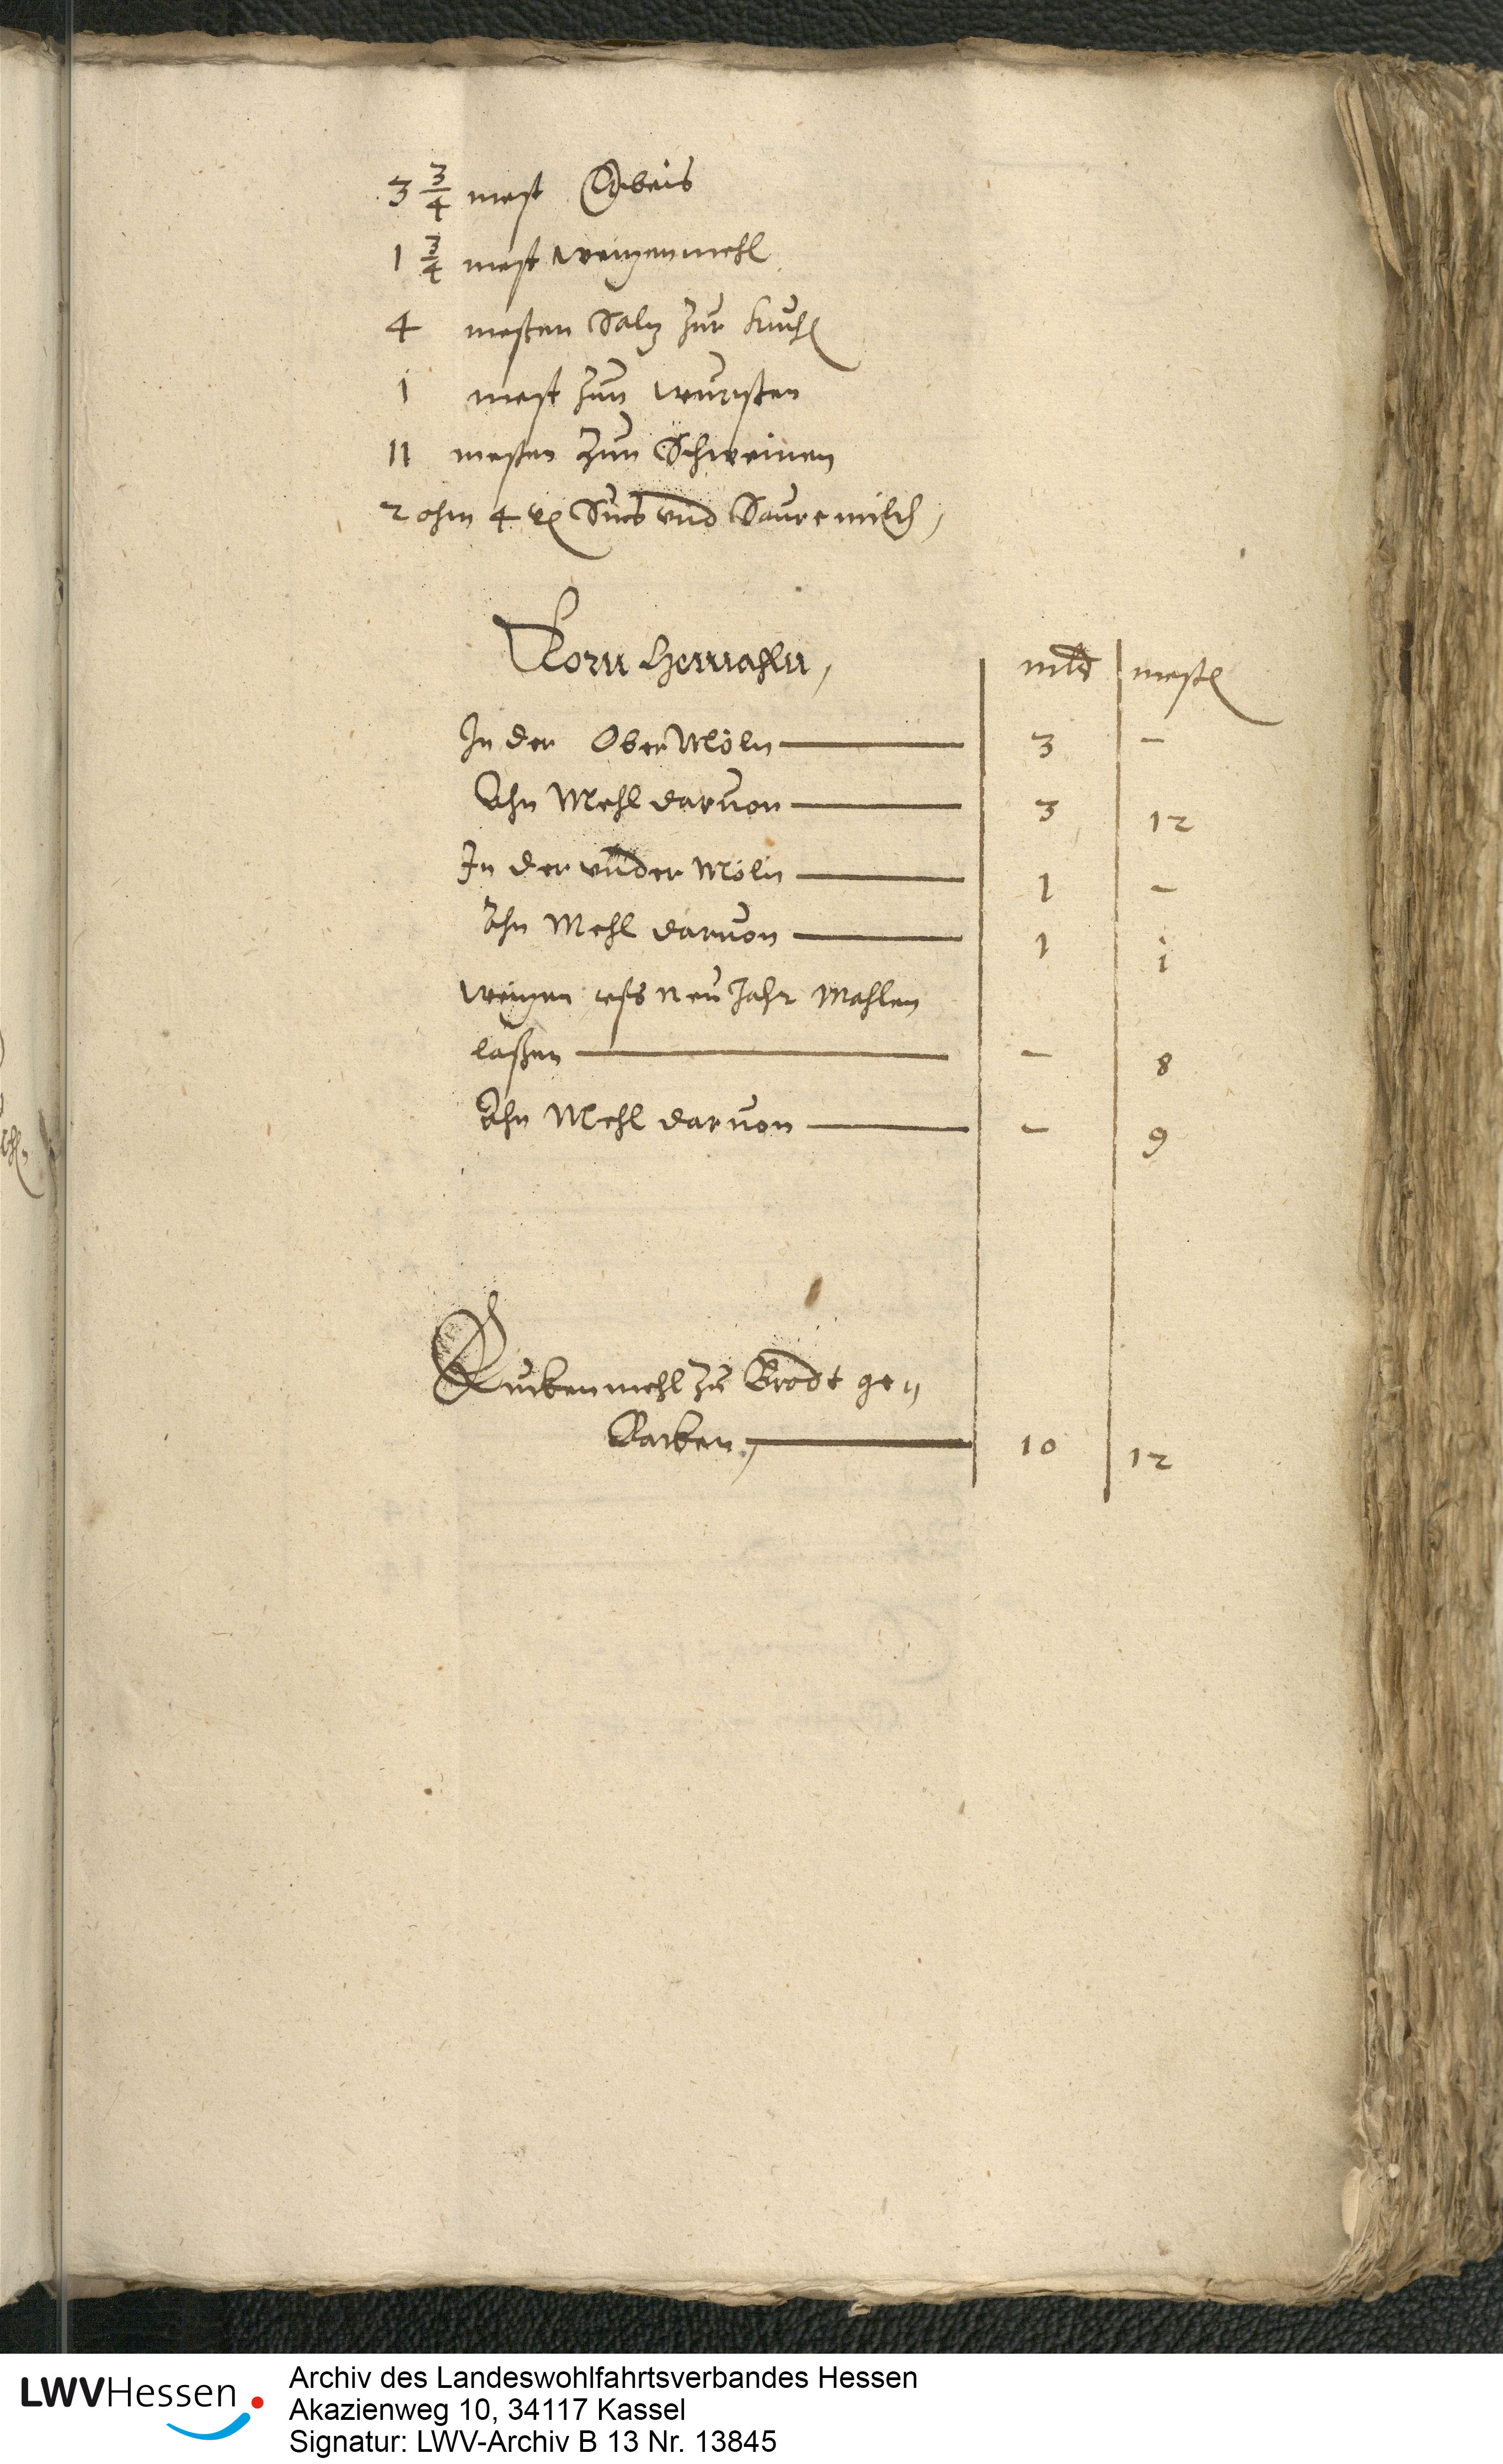 3 3/4 mest Erbeis
1 3/4 mest weitzenmehl
4 mesten Saltz zur kuch
1 mest zun wursten
11 mesten zun Schweinen
2 ohm 4 Süs vnd Sauremilch,
Korn
mld mest
In der Ober Möln 3 -
Ahn Mehl daruon 3 12
In der vnder Möln 1 -
Ahn Mehl daruon 1 1
weitzen vfs neu Jahr Mahlen
laßen - 8
Ahn Mehl daruon - 9
Ruckenmehl zu Brodt ge
backen, 10 12
LWVHessen
Archiv des Landeswohlfahrtsverbandes Hessen
Akazienweg 10, 34117 Kassel
Signatur: LWV-Archiv B 13 Nr. 13845